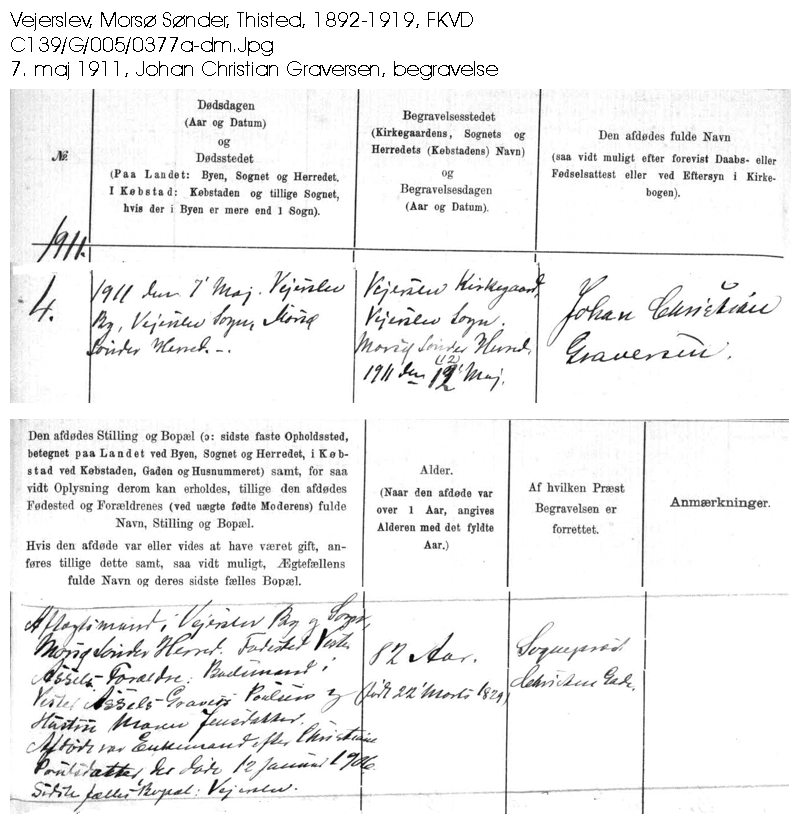 Vejerslev, Morsø Sønder, Thisted, 1892-1919, FKVD
C139/G/005/0377a-dm.Jpg
7. maj 1911, Johan Christian Graversen, begravelse
№.
Dødsdagen
(Aar og Datum)
og
Dødsstedet
(Paa Landet: Byen, Sognet og Herredet.
I Købstad: Købstaden og tillige Sognet,
hvis der i Byen er mere end 1 Sogn).
Begravelsesstedet
(Kirkegaardens, Sognets og
Herredets (Købstadens) Navn)
og
Begravelsesdagen
(Aar og Datum).
Den afdødes fulde Navn
(saa vidt muligt efter forevist Daabs- eller
Fødselsattest eller ved Eftersyn i Kirke-
bogen).
1911.
4.
1911 den 7' Maj. Vejerslev
By, Vejerslev Sogn, Morsø
Sønder Herred. -.
Vejerslev Kirkegaard,
Vejerslev Sogn.
Morsø Sønder Herred.
(12)
1911 den 12' Maj.
Johan Christian
Graversen.
Den afdødes Stilling og Bopæl (ɔ: sidste faste Opholdssted,
betegnet paa Landet ved Byen, Sognet og Herredet, i Køb-
stad ved Købstaden, Gaden og Husnummeret) samt, for saa
vidt Oplysning derom kan erholdes, tillige den afdødes
Fødested og Forældrenes (ved uægte fødte Moderens) fulde
Navn, Stilling og Bopæl.
Hvis den afdøde var eller vides at have været gift, an-
føres tillige dette samt, saa vidt muligt, Ægtefællens
fulde Navn og deres sidste fælles Bopæl.
Alder.
(Naar den afdøde var
over 1 Aar, angives
Alderen med det fyldte
Aar.)
Af hvilken Præst
Begravelsen er
forrettet.
Anmærkninger.
Aftægtsmand i Vejerslev By og Sogn,
Morsø Sønder Herred. Fødested Vester
Assels. Forældre: Bødsmand i
Vester Assels Graves Poulsen og
Hustru Maren Jensdatter.
Afdøde var Enkemand efter Christiane
Poulsdatter, der døde 12 Januar 1906.
Sidste fælles Bopæl: Vejerslev.
82 Aar.
(født 22' Marts 1829)
Sognepræst
Christen Gade.